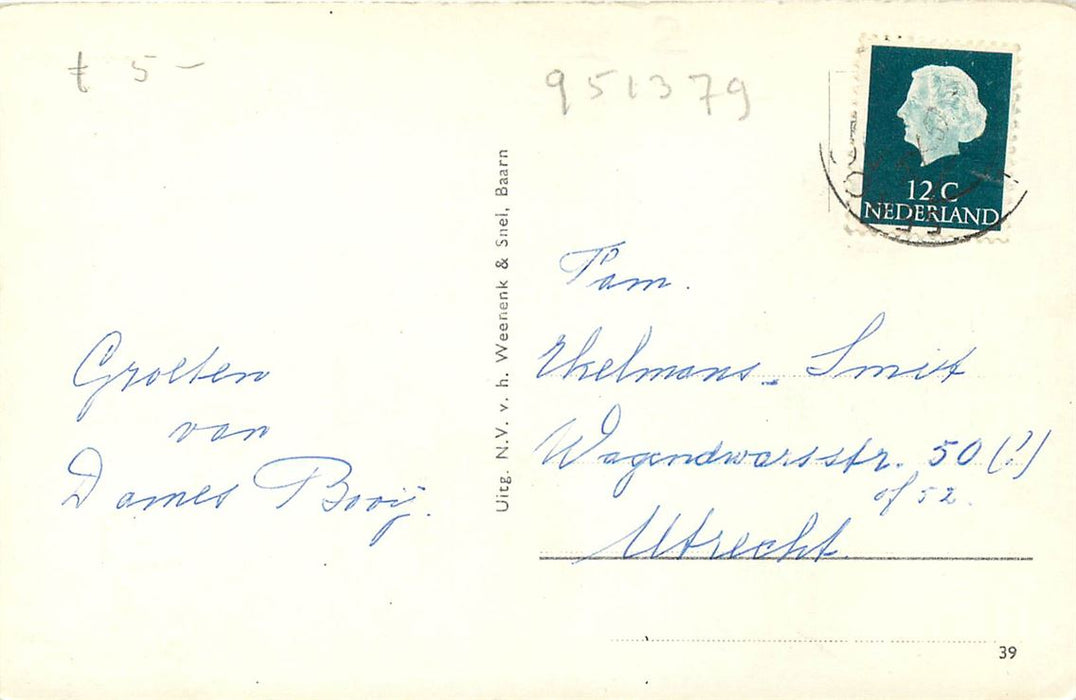 5 -
951379
12 C
NEDERLAND
Groeten
van
Dames Booij.
Uitg. N.V. v. h. Weenenk & Snel, Baarn
Fam.
Ekelmans - Smit
Wagendwarsstr. 50 (?)
of 52.
Utrecht.
39